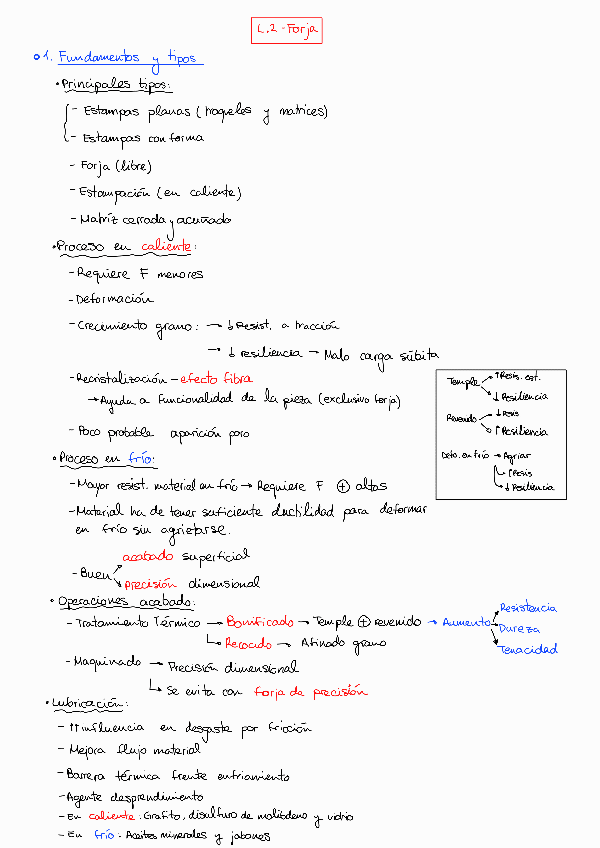 L.2 - Forja
1. Fundamentos y tipos
• Principales tipos:
- Estampas planas (troqueles y matrices)
- Estampas con forma
- Forja (libre)
- Estampación (en caliente)
- Matriz cerrada y acuñado
• Proceso en caliente:
- Requiere F menores
- Deformación
- Crecimiento grano: → ↓ Resist. a tracción
→ ↓ resiliencia → Malo carga súbita
- Recristalización - efecto fibra
→ Ayuda a funcionalidad de la pieza (exclusivo forja)
- Poco probable aparición poro
Temple → ↑ Resis. est.
↓ Resiliencia
Revenido → ↓ Resis
↑ Resiliencia
Defo. en frío → Agriar
↑ Resis
↓ Resiliencia
• Proceso en frío:
- Mayor resist. material en frío → Requiere F ⊕ altas
- Material ha de tener suficiente ductilidad para deformar
en frío sin agrietarse.
- Buen → acabado superficial
→ Precisión dimensional
• Operaciones acabado:
- Tratamiento Térmico → Bonificado → Temple ⊕ revenido → Aumento → Resistencia
Dureza
Tenacidad
→ Recocido → Afinado grano
- Maquinado → Precisión dimensional
→ Se evita con forja de precisión
• Lubricación:
- ↑↑ influencia en desgaste por fricción
- Mejora flujo material
- Barrera térmica frente enfriamiento
- Agente desprendimiento
- En caliente: Grafito, disulfuro de molibdeno y vidrio
- En frío: Aceites minerales y jabones